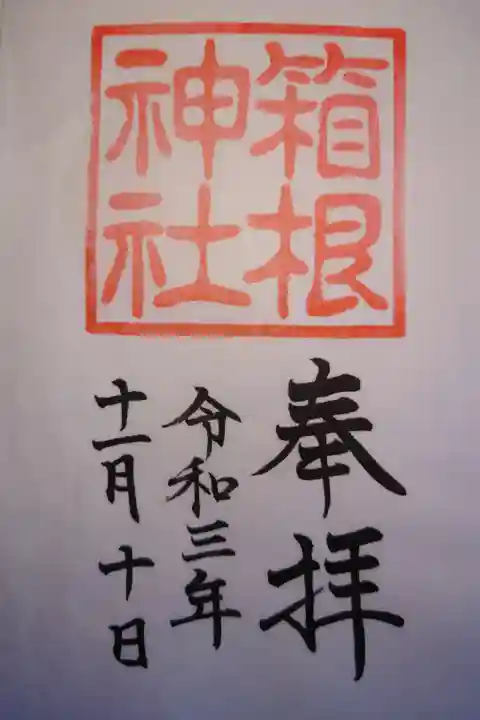 箱根
神社
奉拝
令和三年
十一月十日